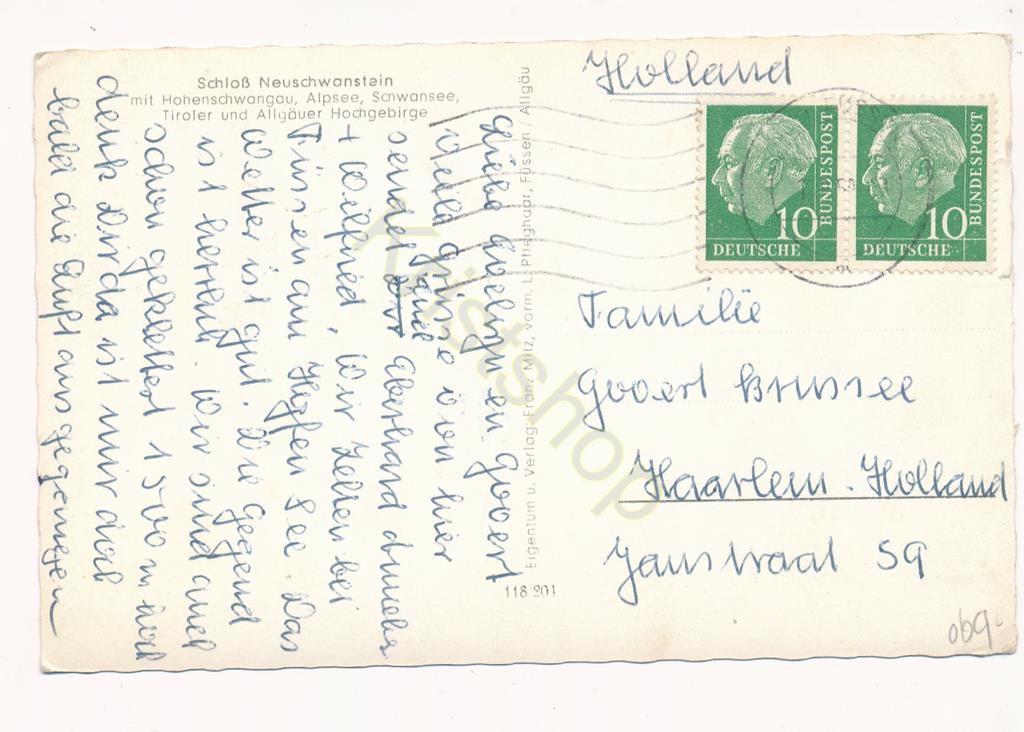 Schloß Neuschwanstein
mit Hohenschwangau, Alpsee, Schwansee,
Tiroler und Allgäuer Hochgebirge
Holland
10
DEUTSCHE
BUNDESPOST
10
DEUTSCHE
BUNDESPOST
Familie
Govert Brussee
Haarlem. Holland
Janstraat 59
Eigentum u. Verlag: Franz Milz, vorm. L. Pfleghaar, Füssen / Allgäu
118/201
Liebe Evelijn en Govert
Viele Grüsse von hier
sendet Eberhard
+ Wilfried, Wir Zelten bei
Füssen am Hopfen See. Das
Wetter ist gut. Die Gegend
ist herrlich. Wir sind auch
schon geklettert 1500 m hoch
denk Dir da ist mir doch
bald die Luft ausgegangen
069-
Kristshop